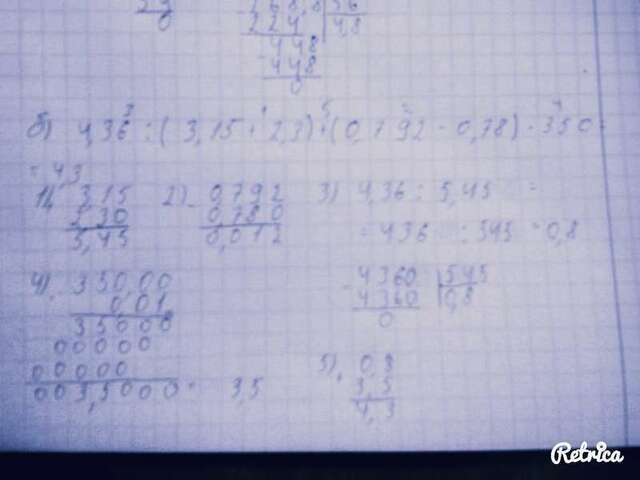 268,8 | 56
224 | 4,8
448
448
0
б) 4,36 : (3,15 + 2,3) + (0,792 - 0,78) · 350 =
= 4,3
1) 3,15
2,30
5,45
2) - 0,792
0,780
0,012
3) 4,36 : 5,45 =
= 436 : 545 = 0,8
- 4360 | 545
4360 | 0,8
0
4) 350,00
0,01
35000
00000
00000
003,5000 = 3,5
5) + 0,8
3,5
4,3
Retrica